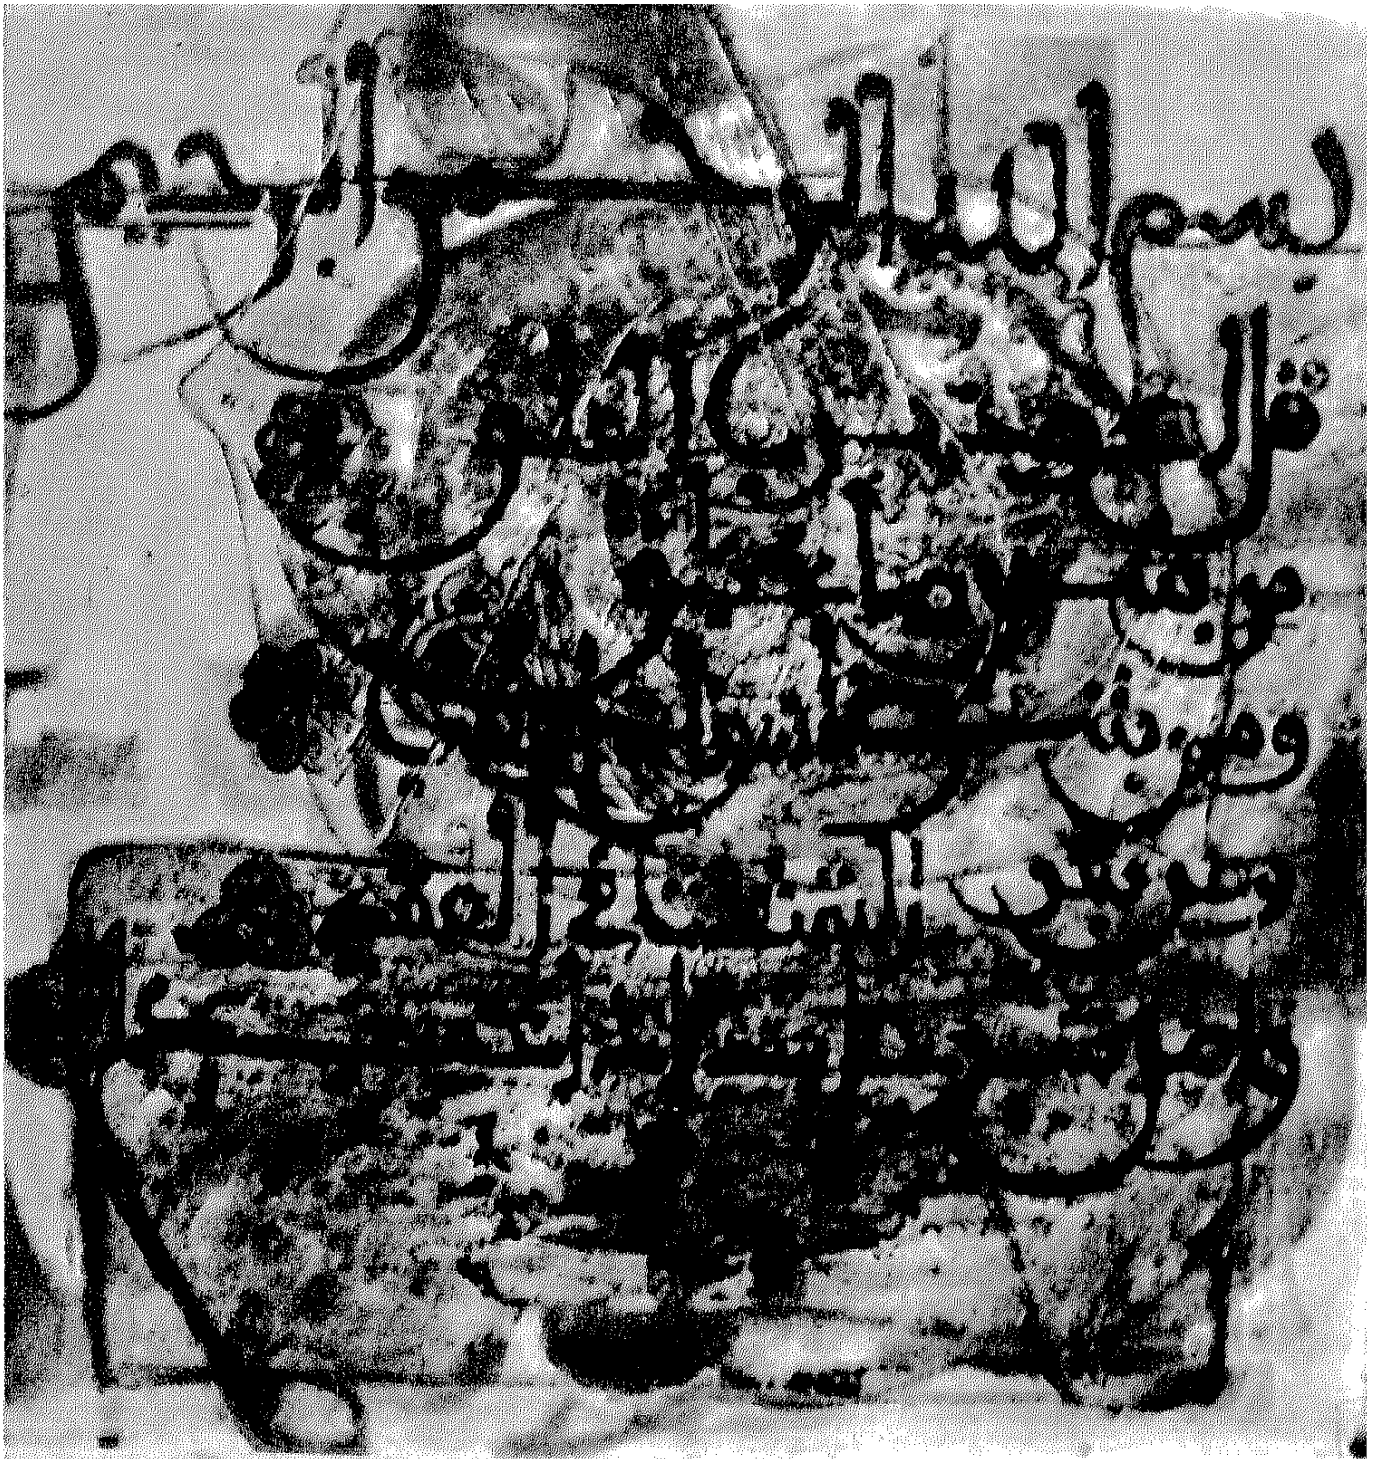 بسم الله الرحمن الرحيم
قل اعوذ برب الفلق
من شر ما خلق
ومن شر غاسق اذا وقب
ومن شر النفثت في العقد
ومن شر حاسد اذا حسد